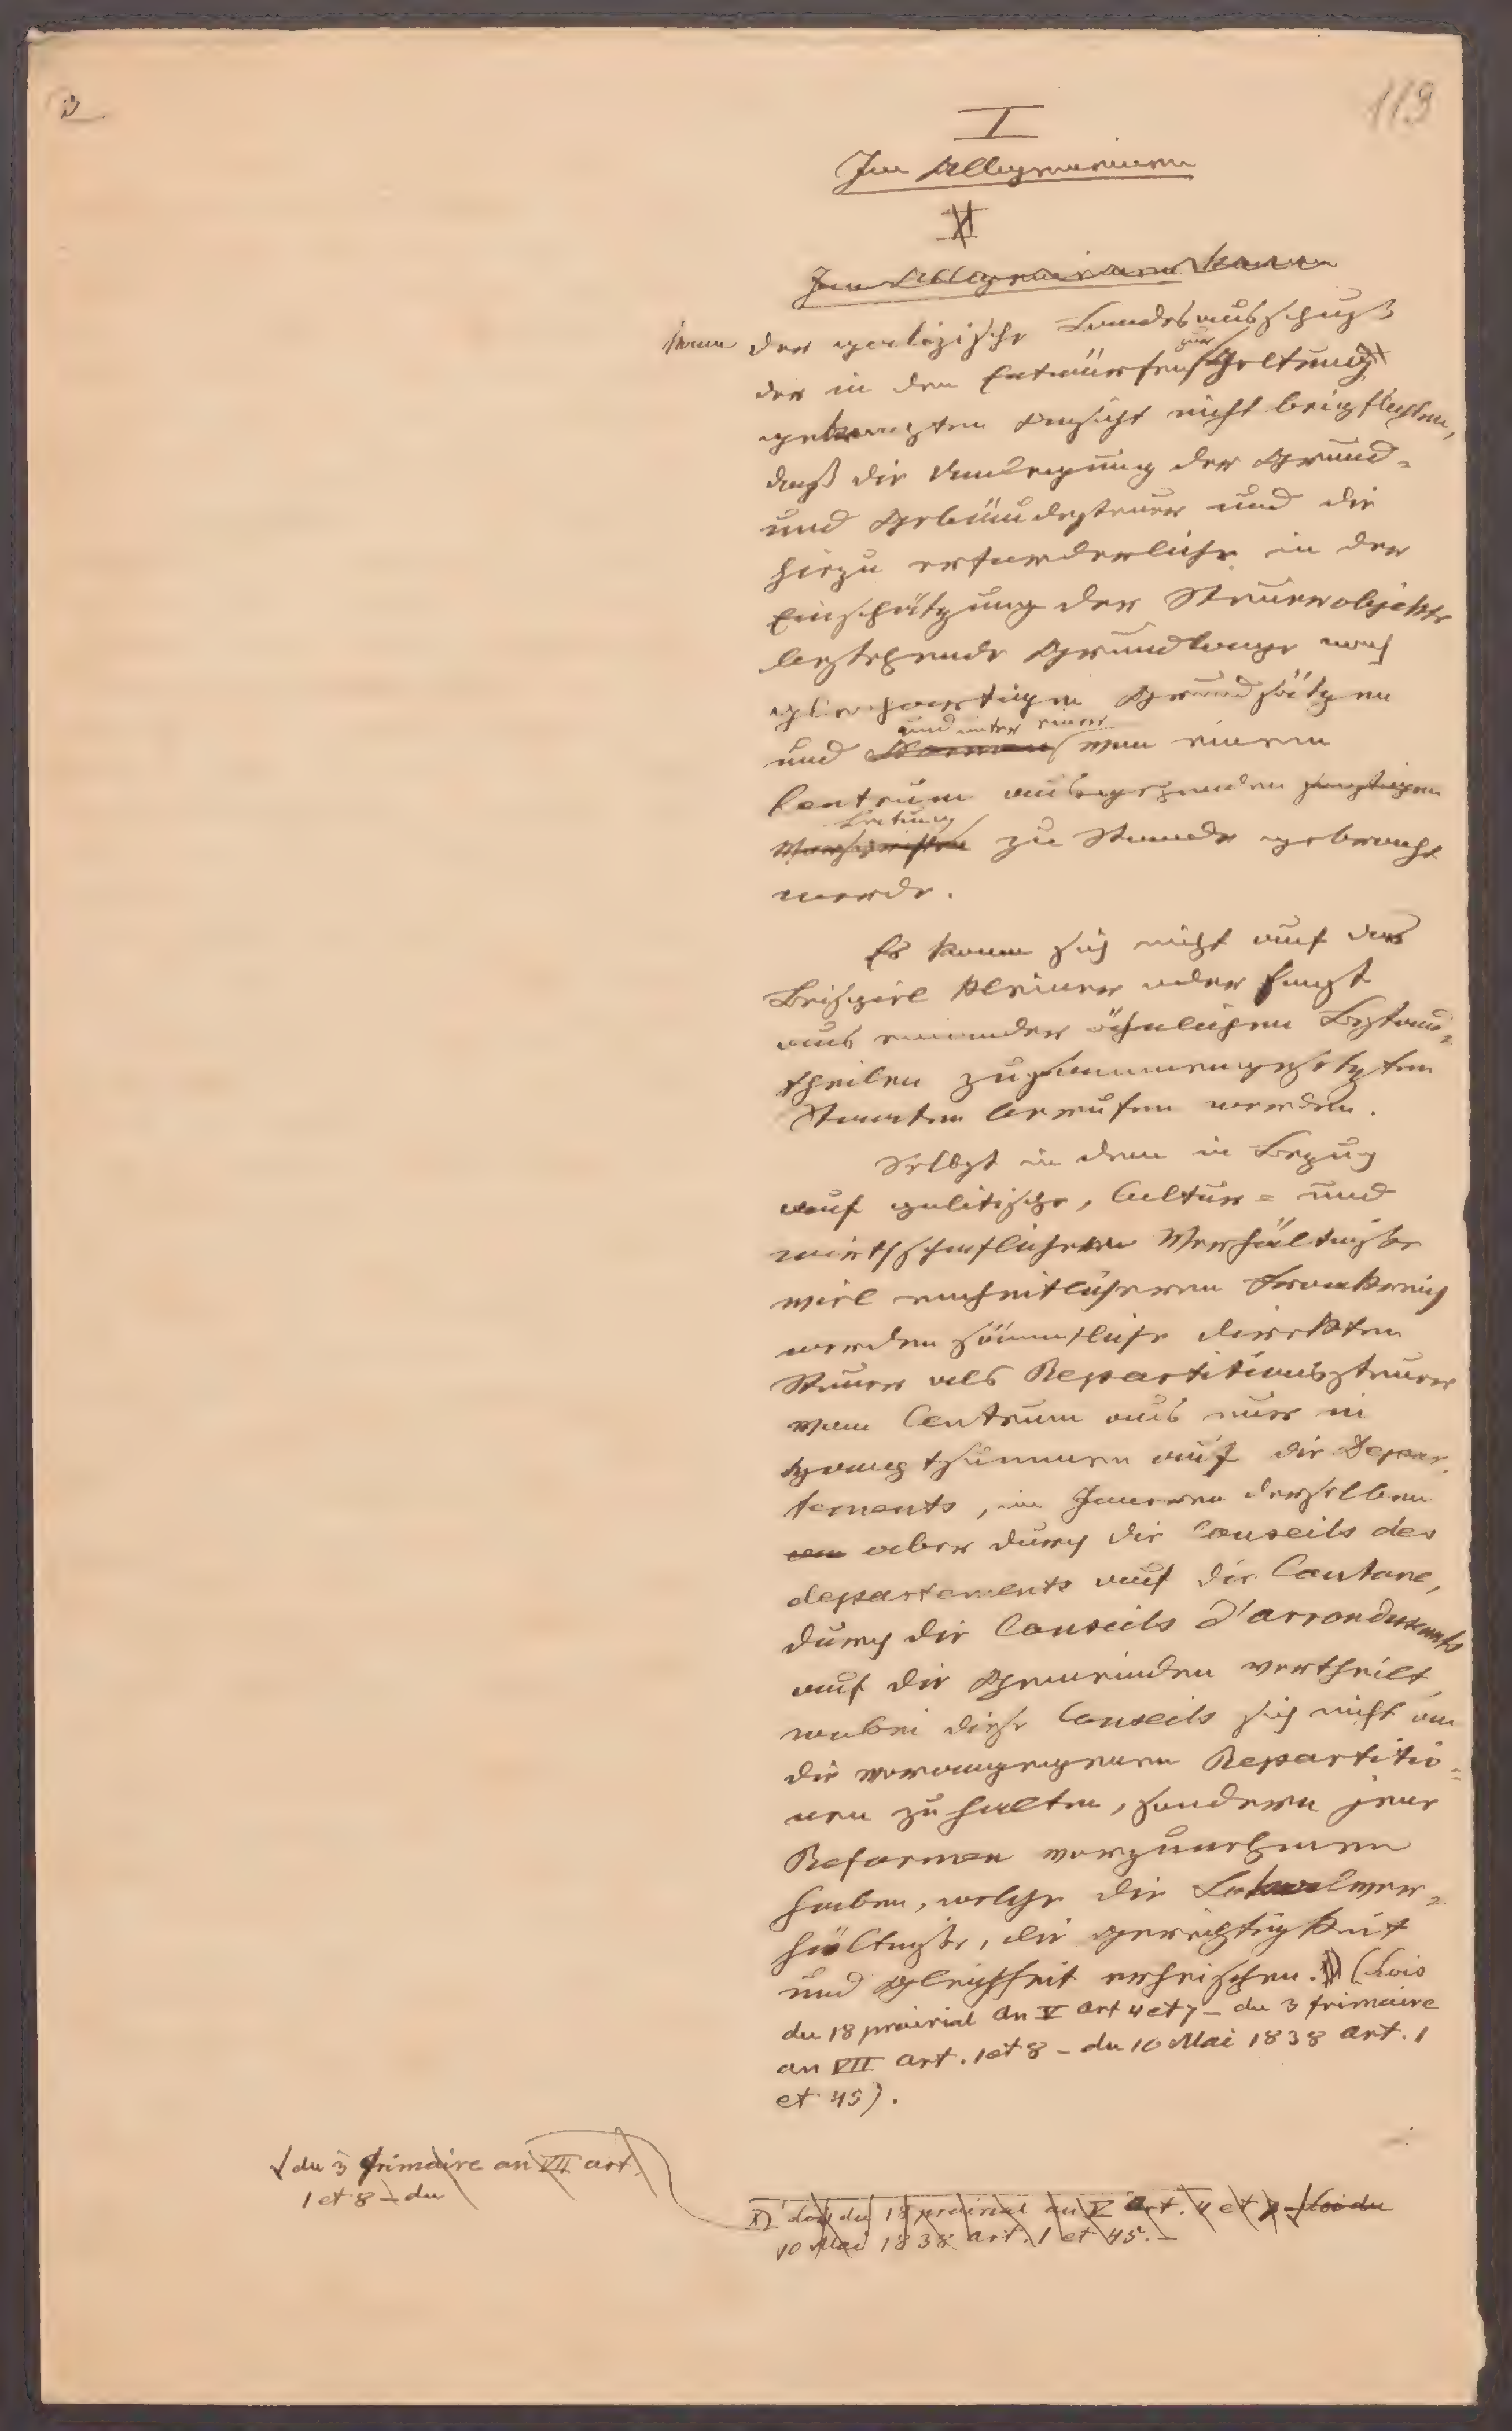 3
119
I
Im Allgemeinen
II
Im Allgemeinen kann
kann der galizische Landesausschuß
der in den Entwürfen zur Geltung
gebrachten Ansicht nicht beipflichten,
daß die Umlegung der Grund-
und Gebäudesteuer und die
hiezu erforderliche in der
Einschätzung der Steuerobjekte
bestehende Grundlage nach
gleichartigen Grundsätzen
und unter einer
und Normen von einem
Centrum ausgehenden
Leitung
Vorschriften zu Stande gebracht
werde.
Es kann sich nicht auf das
Beispiel kleiner oder sonst
aus einander ähnlichen Bestand-
theilen zusammengesetzten
Staaten berufen werden.
Selbst in dem in Bezug
auf politische, Cultur- und
wirthschaftlichen Verhältniße
viel einheitlicheren Frankreich
werden sämmtliche direkten
Steuer als Repartitionssteuer
vom Centrum aus nur in
Hauptsummen auf die Depar-
tements, im Inneren derselben
aber durch die Conseils des
departements auf die Cantone,
durch die Conseils d'arrondissements
auf die Gemeinden vertheilt,
wobei diese Conseils sich nicht an
die vorangegangenen Repartitio-
nen zu halten, sondern jene
Reformen vorzunehmen
haben, welche die Lokalver-
hältniße, die Gerechtigkeit
und Gleichheit erheischen. (Lois
du 18 prairial an V art 4 et 7 – du 3 frimaire
an VII art. 1 et 8 – du 10 Mai 1838 art. 1
et 45).
du 3 frimaire an VII art.
1 et 8 – du
Loi du 18 prairial an V art. 4 et 7 – Loi du
10 Mai 1838 art. 1 et 45. –